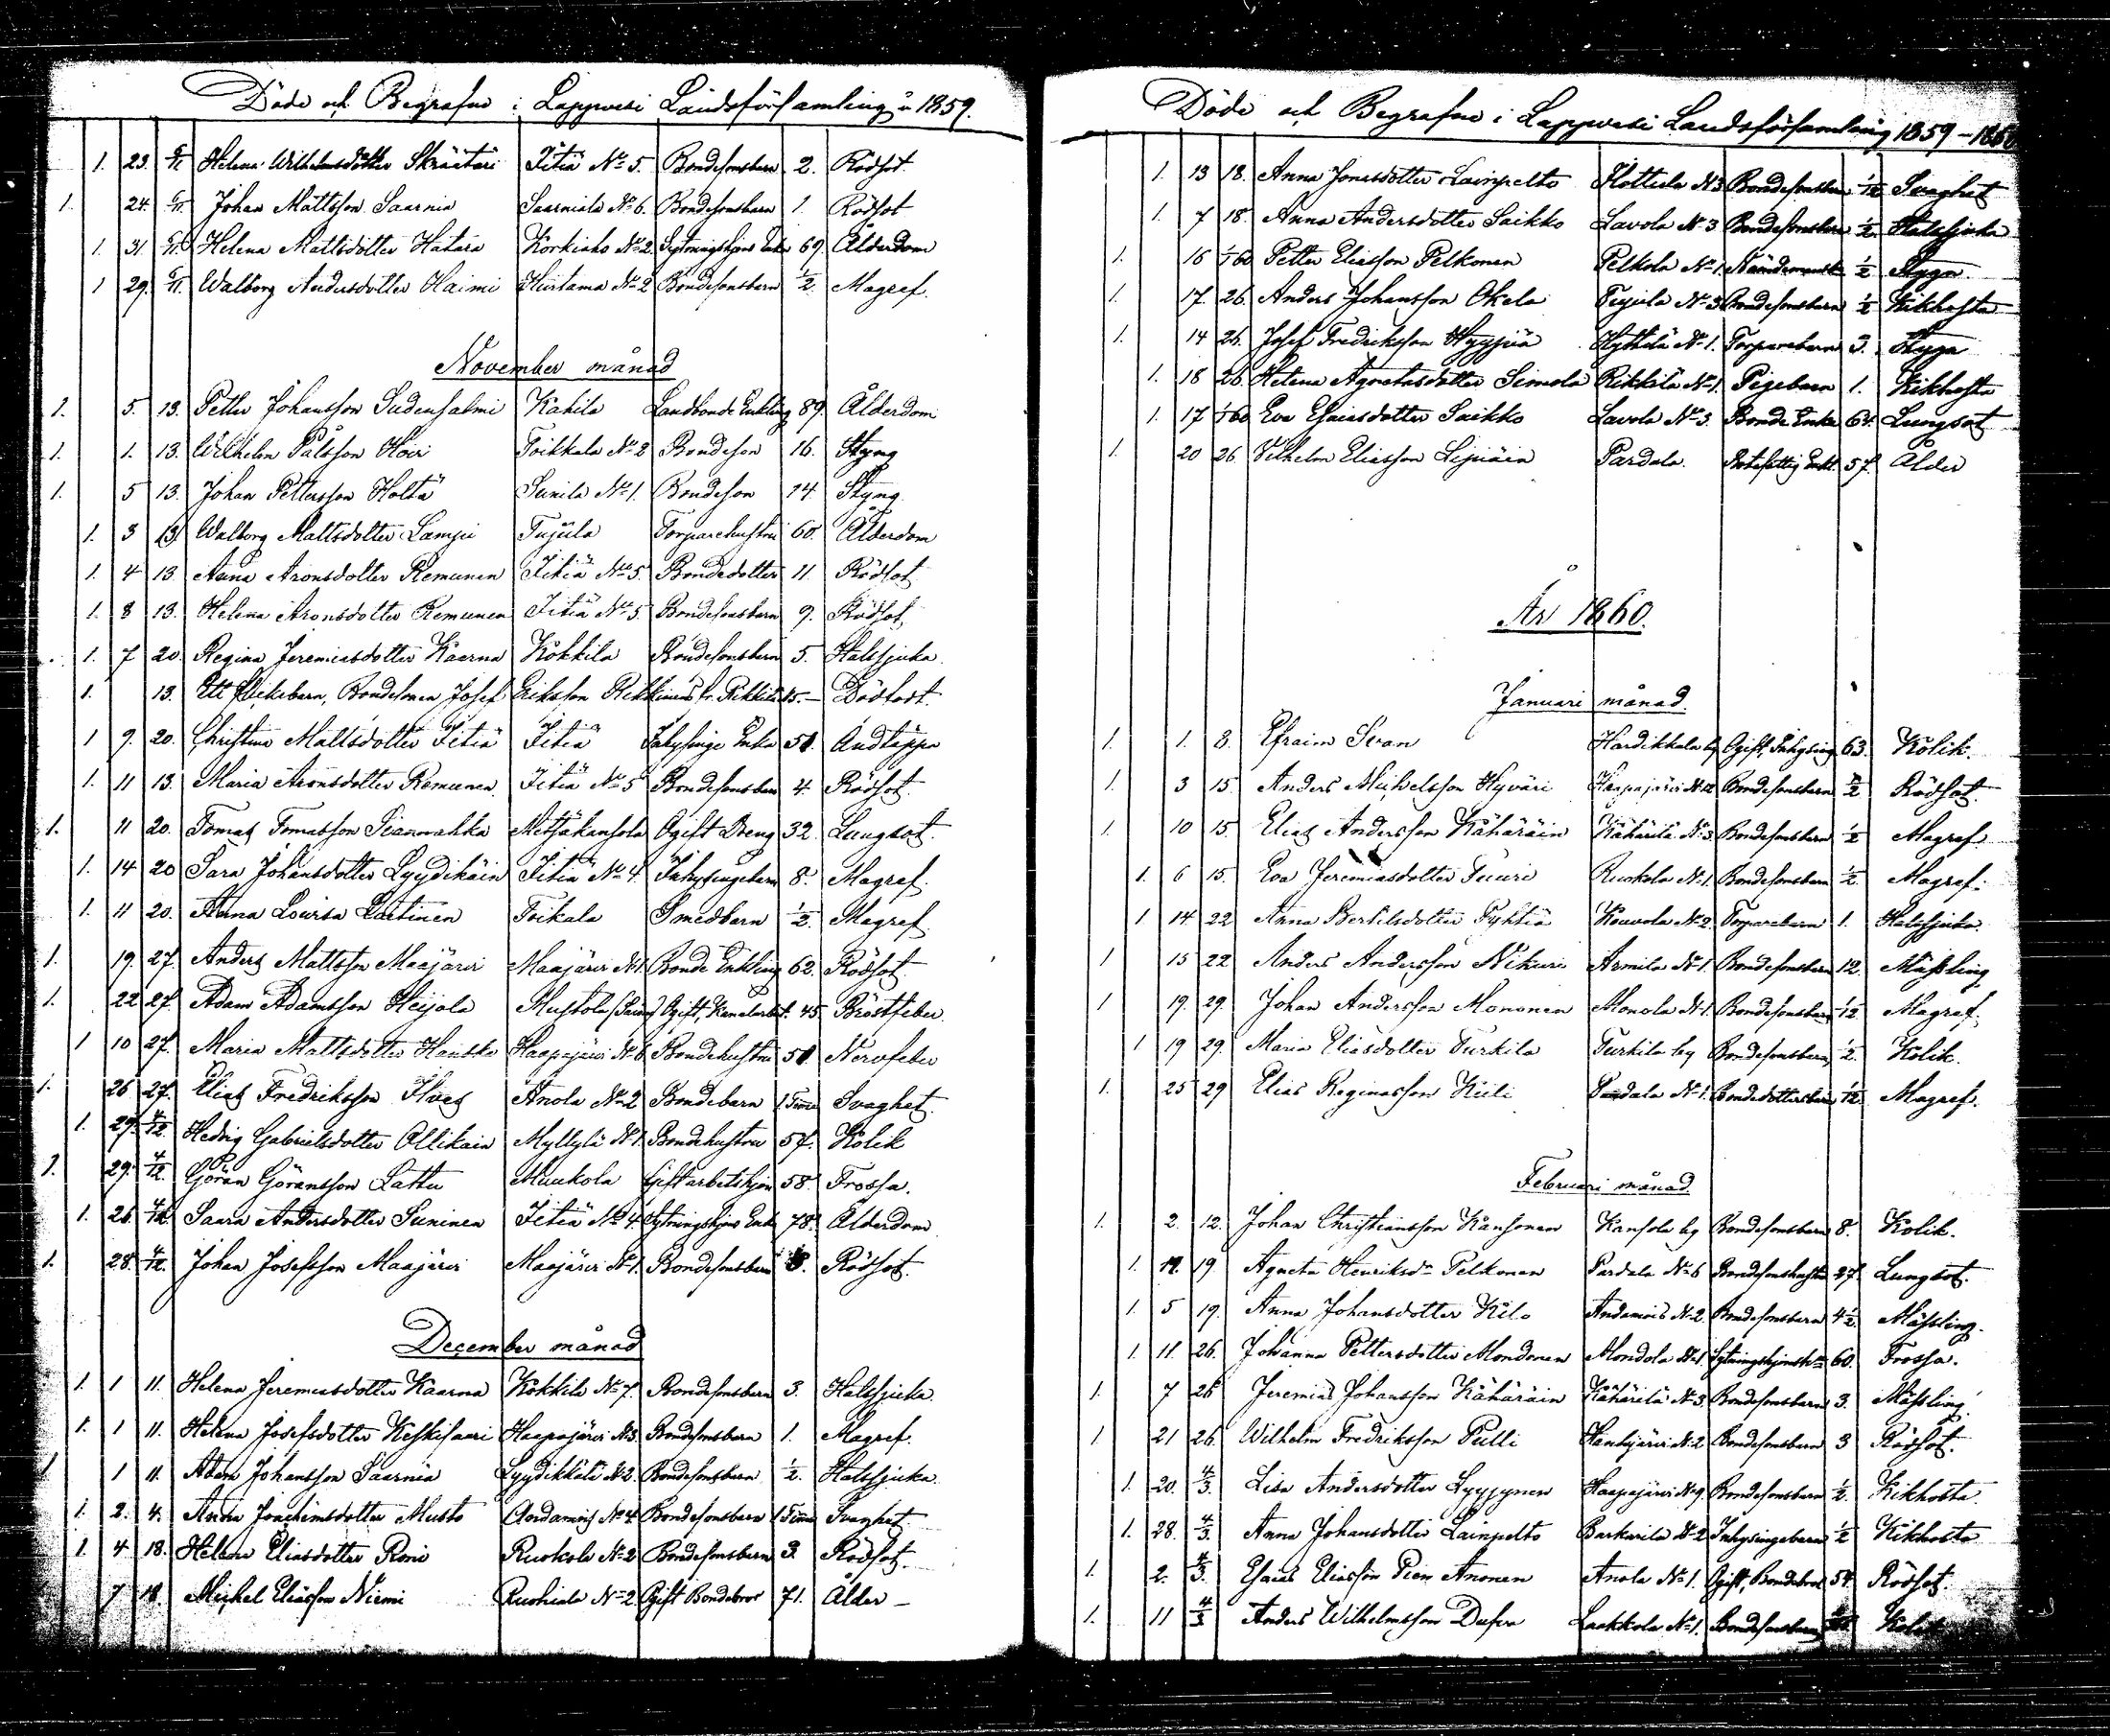 Döde och Begrafne i Lappvesi Landsförsamling år 1859.
1. 23. 6/11 Helena Wilhelmsdotter Skräätari Iitiä No 5. Bondesonsbarn 2. Rödsot
1. 24. 6/11 Johan Mattsson Saarnia Saarniala No 6. Bondesonsbarn 1. Rödsot
1. 31. 6/11 Helena Mattsdotter Hatara Korkiaho No 2. Sytningshjons Enka 69. Ålderdom
1 29. 6/11 Walborg Andersdotter Haimi Hiirlama No 2 Bondesonsbarn 1/2. Magref.
November månad
1. 5. 13. Petter Johansson Sudensalmi Kahila Landbonde Enkling 89. Ålderdom
1. 1. 13. Wilhelm Pålsson Hovi Toikkala No 2 Bondeson 16. Styng
1. 5 13. Johan Pettersson Holtä Sunila No 1. Bondeson 14. Styng.
1. 3 13 Walborg Mattsdotter Lampu Tujula Torparehustru 60. Ålderdom
1. 4 13 Anna Aronsdotter Remunen Iitiä No 5. Bondedotter 11. Rödsot
1. 8 13. Helena Aronsdotter Remunen Iitiä No 5. Bondesonsbarn 9. Rödsot
1. 7 20 Regina Jeremiasdotter Kaarna Kokkila Bondesonsbarn 5. Halssjuka
1. 13. Ett flickebarn, Bondesonen Josef Eriksson Rikkinens fr. Rikkilä 15. — Dödfödt.
1 9. 20. Christina Mattsdotter Iitiä Iitiä Inhysinge Enka 51. Andtäppa
1. 11 13. Maria Aronsdotter Remunen Iitiä No 5 Bondesonsbarn 4. Rödsot.
1. 11 20. Tomas Tomasson Metsäkansola Ogift Dreng 32. Lungsot.
1. 14 20 Sara Johansdotter Lyydikäin Iitiä No 4. Inhysingebarn 8. Magref.
1. 11 20. Anna Lovisa Laitinen Toikala Smedbarn 1/2. Magref.
1. 19. 27. Anders Mattsson Maajärvi Maajärvi No 1. Bonde Enkling 62. Rödsot
1. 22 27. Adam Adamsson Heijola Mustola Ogift, Kanalarbet. 45. Bröstfeber
1 10 27. Maria Mattsdotter Hanska Haapajärvi No 6 Bondehustru 51 Nervfeber
1. 26 27. Elias Fredriksson Ilves Anola No 2 Bondebarn 1. Timme Svaghet.
1. 29. 4/12. Hedvig Gabrielsdotter Ollikain Myllylä No 1. Bondehustru 57. Kolik
1. 29. 4/12. Göran Göransson Lattu Muukola Gift arbetshjon 58. Frossa.
1. 26. 4/12 Saara Andersdotter Suninen Iitiä No 4. Sytningshjons Enka 78. Ålderdom
1. 28. 4/12. Johan Josefsson Maajärvi Maajärvi No 1. Bondesonsbarn 8. Rödsot.
December månad
1. 1 11. Helena Jeremiasdotter Kaarna Kokkila No 7. Bondesonsbarn 3. Halssjuka
1. 1 11. Helena Josefsdotter Keskisaari Haapajärvi No 3. Bondesonsbarn 1. Magref.
1 1 11. Adam Johansson Saarnia Lyydikkälä No 2. Bondesonsbarn 1/2. Halssjuka
1. 2. 4. Anna Joachimsdotter Musto No 4. Bondesonsbarn 1 Timme Svaghet.
1. 4 18. Helena Eliasdotter Roni Ruokola No 2 Bondesonsbarn 3. Rödsot.
7 18 Michel Eliasson Niemi Ruohiala No 2. Gift Bondebror 71. Ålder —
Döde och Begrafne i Lappvesi Landsförsamling 1859–1860
1. 13 18. Anna Jonasdotter Lainpelto Hottula No 3 Bondesonsbarn 1/12 Svaghet
1. 7 18. Anna Andersdotter Saikko Lavola No 3 Bondesonsbarn 1/2. Halssjuka
1. 16 1/1 60 Petter Eliasson Pelkonen Pelkola No 1. 1/2 Styga
1. 17 26. Anders Johansson Okala Tujula No 3 Bondesonsbarn 1/2 Kikhosta
1. 14 26. Josef Fredriksson Hyypiä Hyttilä No 1. Torparebarn 3. Styga
1. 18 26. Helena Agnetasdotter Simola Rikkilä No 1. Pigebarn 1. Kikhosta
1. 17 1/1 60 Eva Esaiasdotter Saikko Lavola No 3. Bonde Enka 64. Lungsot
1. 20 26. Vilhelm Eliasson Lepiäin Pardala. 57. Ålder
År 1860.
Januari månad.
1. 1. 8. Efraim Svan Hardikkala by Ogift, Inhysing 63. Kolik.
1. 3 15. Anders Michelsson Hyväri Haapajärvi No 12 Bondesonsbarn 1/2 Rödsot.
1. 10 15. Elias Andersson Kähäräin Kähärilä No 3. Bondesonsbarn 1/2 Magref
1. 6 15. Eva Jeremiasdotter Tuuri Ruokola No 1. Bondesonsbarn 1/2. Magref.
1 14 22 Anna Bertilsdotter Pyhtiä Kouvola No 2. Torparebarn 1. Halssjuka
1 15 22 Anders Andersson Nikuri Armila No 1. Bondesonsbarn 12. Mässling
1 19. 29. Johan Andersson Mononen Monola No 1. Bondesonsbarn 1/2. Magref.
1 19 29. Maria Eliasdotter Turkila Turkila by Bondesonsbarn 1/2. Kolik.
1. 25 29 Elias Reginasson Kiili Pardala No 1. Bondedottersbarn 1/12 Magref.
Februari månad
1. 2. 12. Johan Christiansson Kansonen Kansola by Bondesonsbarn 8. Kolik.
1. 14. 19 Agneta Henriksdr Pelkonen Pardala No 6 Bondesonshustru 27. Lungsot.
1. 5 19. Anna Johansdotter Kilo No 2. Bondesonsbarn 4 1/2. Mässling.
1. 11. 26. Johanna Pettersdotter Mondonen Mondola No 1. 60. Frossa.
1. 7 26 Jeremias Johansson Kähäräin Kähärilä No 3. Bondesonsbarn 3. Mässling
1 21 26. Wilhelm Fredriksson Pulli Hanhijärvi No 2 Bondesonsbarn 3 Rödsot.
1. 20. 4/3. Lisa Andersdotter Lyyjynen Haapajärvi No 9. Bondesonsbarn 1/2. Kikhosta
1. 28. 4/3. Anna Johansdotter Lainpelto Barkarila No 2 Inhysingebarn 1/2 Kikhosta
1. 2. 4/3. Esaias Eliasson Pien Anonen Anola No 1. Ogift, Bondebror 54. Rödsot.
1. 11 4/3 Anders Wilhelmsson Dufva Laakkola No 1. Bondesonsbarn Kolik